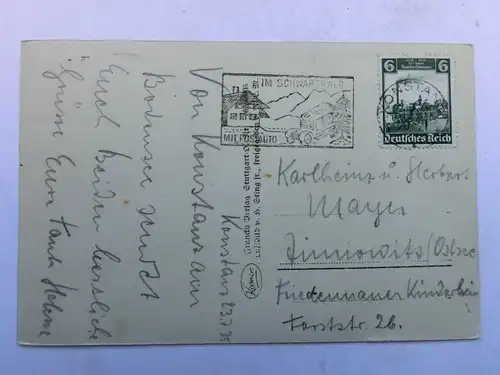 Konstanz 23.7.35
Von Konstanz am
Bodensee sendet
Euch Beiden herzliche
Grüsse Eure Tante Helene
IM SCHWARZWALD
MIT POSTAUTO
KONSTANZ
6 6
Deutsches Reich
Karlheinz u. Herbert
Mayer
Zinnowitz/Ostsee
Friedenauer Kinderheim
Forststr. 26.